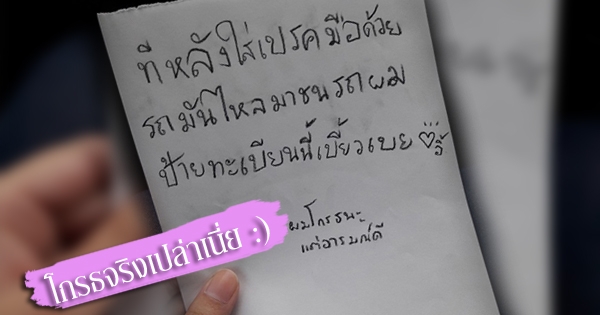 ทีหลังใส่เบรคมือด้วย
รถมันไหลมาชนรถผม
ป้ายทะเบียนนี้เบี้ยวเบย
ผมโกรธนะ
แต่อารมณ์ดี
โกรธจริงเปล่าเนี่ย :)